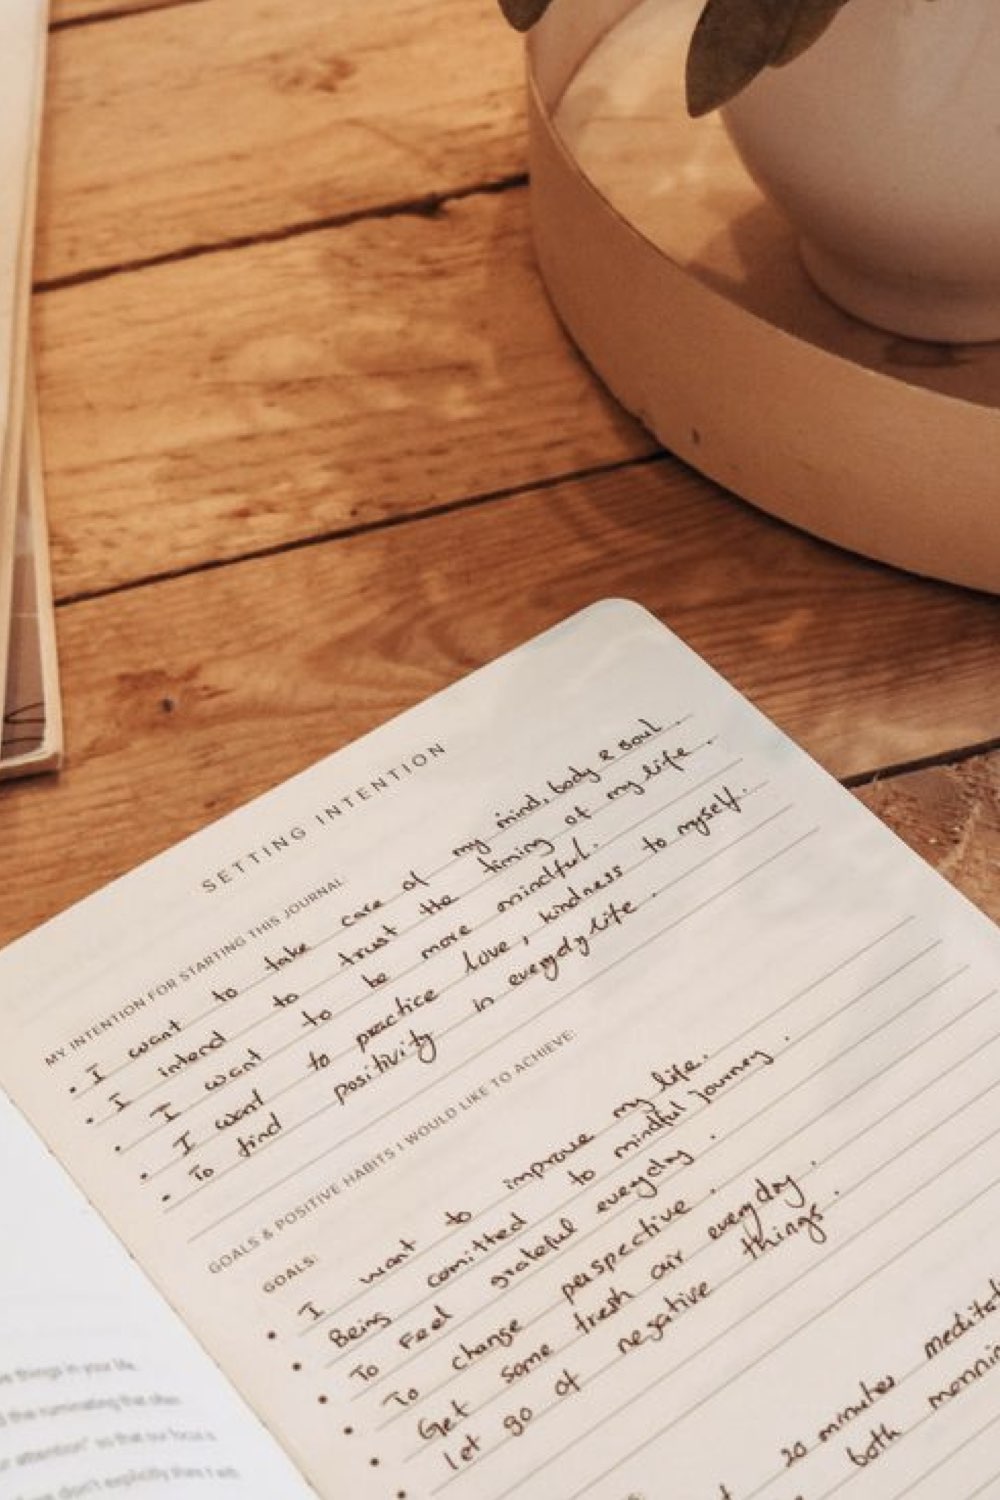 SETTING INTENTION
MY INTENTION FOR STARTING THIS JOURNAL:
• I want to take care of my mind, body & soul.
• I intend to trust the timing of my life.
• I want to be more mindful.
• I want to practice love, kindness to myself.
• To find positivity in everyday life.
GOALS & POSITIVE HABITS I WOULD LIKE TO ACHIEVE:
GOALS:
• I want to improve my life.
• Being comitted to mindful journey.
• To Feel grateful everyday.
• To change perspective.
• Get some fresh air everyday.
• let go of negative things.
20 minutes
both
things in your life.
the ruminating the
attention" so that our focus
don't explicitly